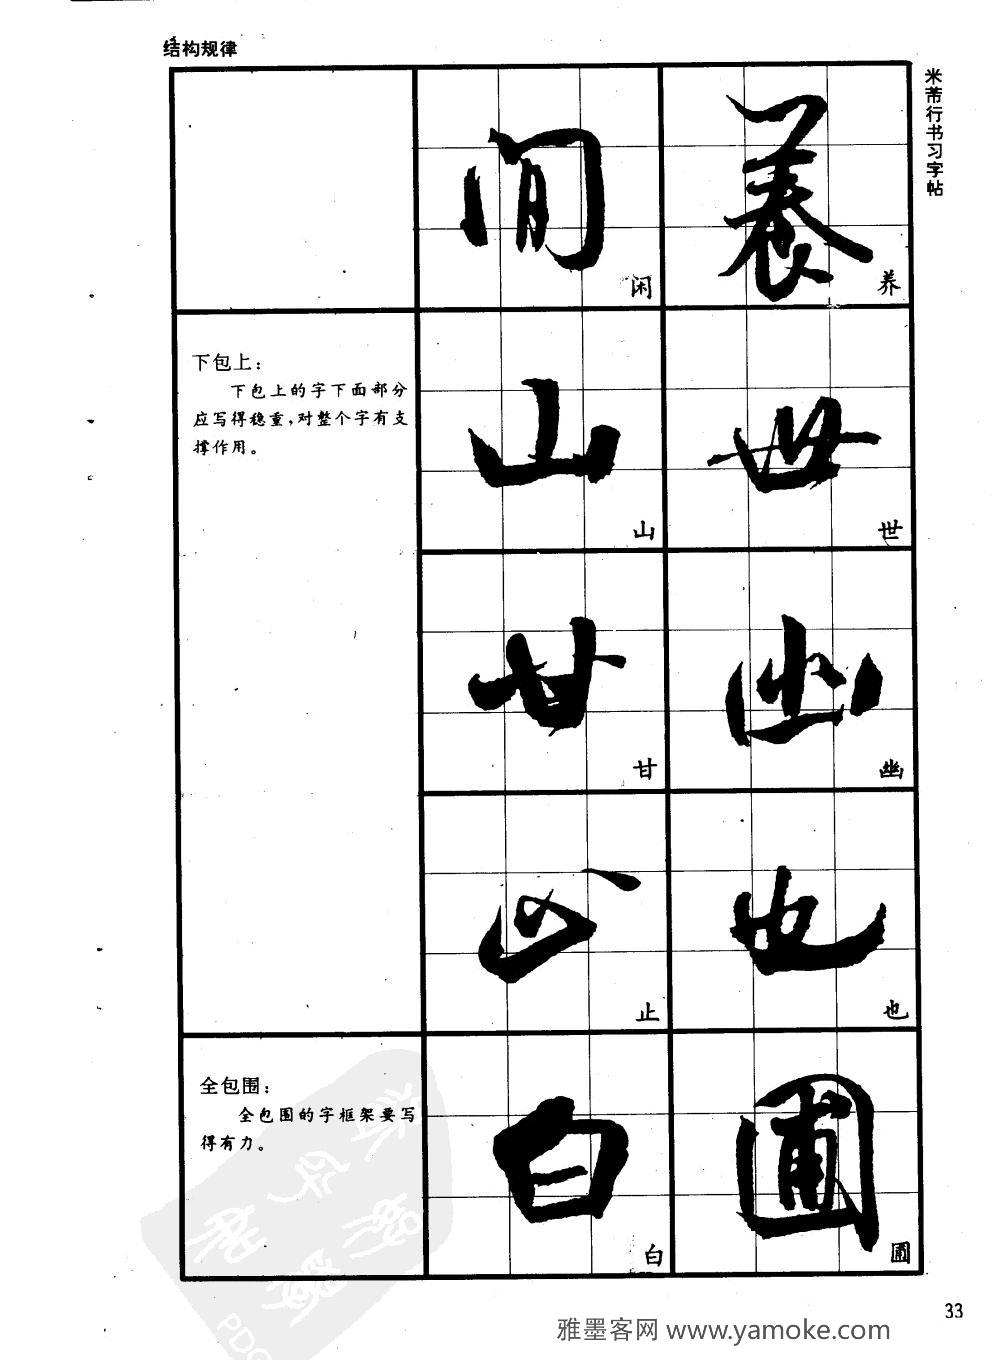 结构规律
米芾行书习字帖
閒
闲
養
养
下包上：
下包上的字下面部分
应写得稳重，对整个字有支
撑作用。
山
山
世
世
甘
甘
幽
幽
止
止
也
也
全包围：
全包围的字框架要写
得有力。
白
白
圃
圃
33
雅墨客网 www.yamoke.com